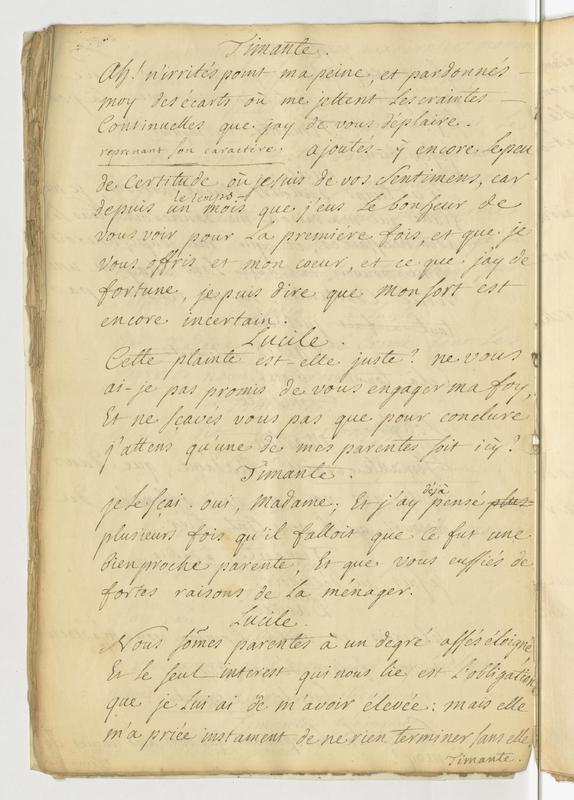 Timante.
Ah! n'irrités point ma peine, et pardonnés-
moy des écarts où me jettent les craintes
Continuelles que j'ay de vous déplaire.
reprenant son caractère. ajoutés-y encore le peu
de Certitude où je suis de vos Sentimens, car
le temps
depuis un mois que j'eus le bonheur de
vous voir pour la première fois, et que je
vous offris et mon cœur, et ce que j'ay de
fortune, je puis dire que mon sort est
encore incertain.
Lucile.
Cette plainte est-elle juste? ne vous
ai-je pas promis de vous engager ma foy,
Et ne sçavés vous pas que pour conclure
j'attens qu'une de mes parentes soit icy?
Timante.
je le sçai. oui, Madame; Et j'ay déjà pensé plus
plusieurs fois qu'il falloit que le fut une
bien proche parente, Et que vous eussiés de
fortes raisons de la ménager.
Lucile.
Nous som̃es parentes à un degré assés éloigné
Et le seul interest qui nous lie est l'obligation
que je lui ai de m'avoir élevée: mais elle
m'a priée instament de ne rien terminer sans elle.
Timante.